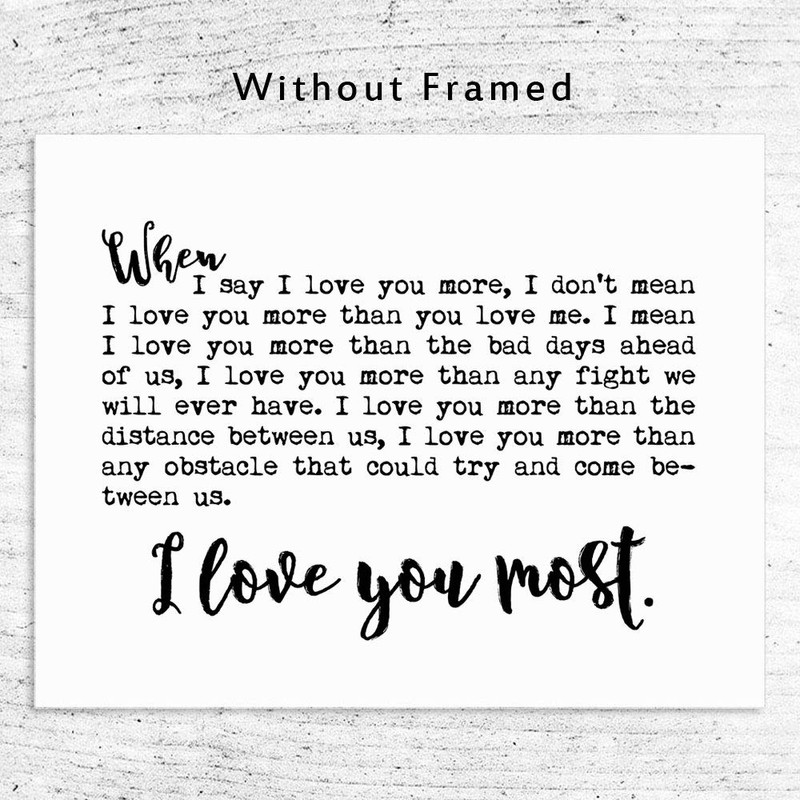 Without Framed
When
I say I love you more, I don't mean
I love you more than you love me. I mean
I love you more than the bad days ahead
of us, I love you more than any fight we
will ever have. I love you more than the
distance between us, I love you more than
any obstacle that could try and come be-
tween us.
I love you most.